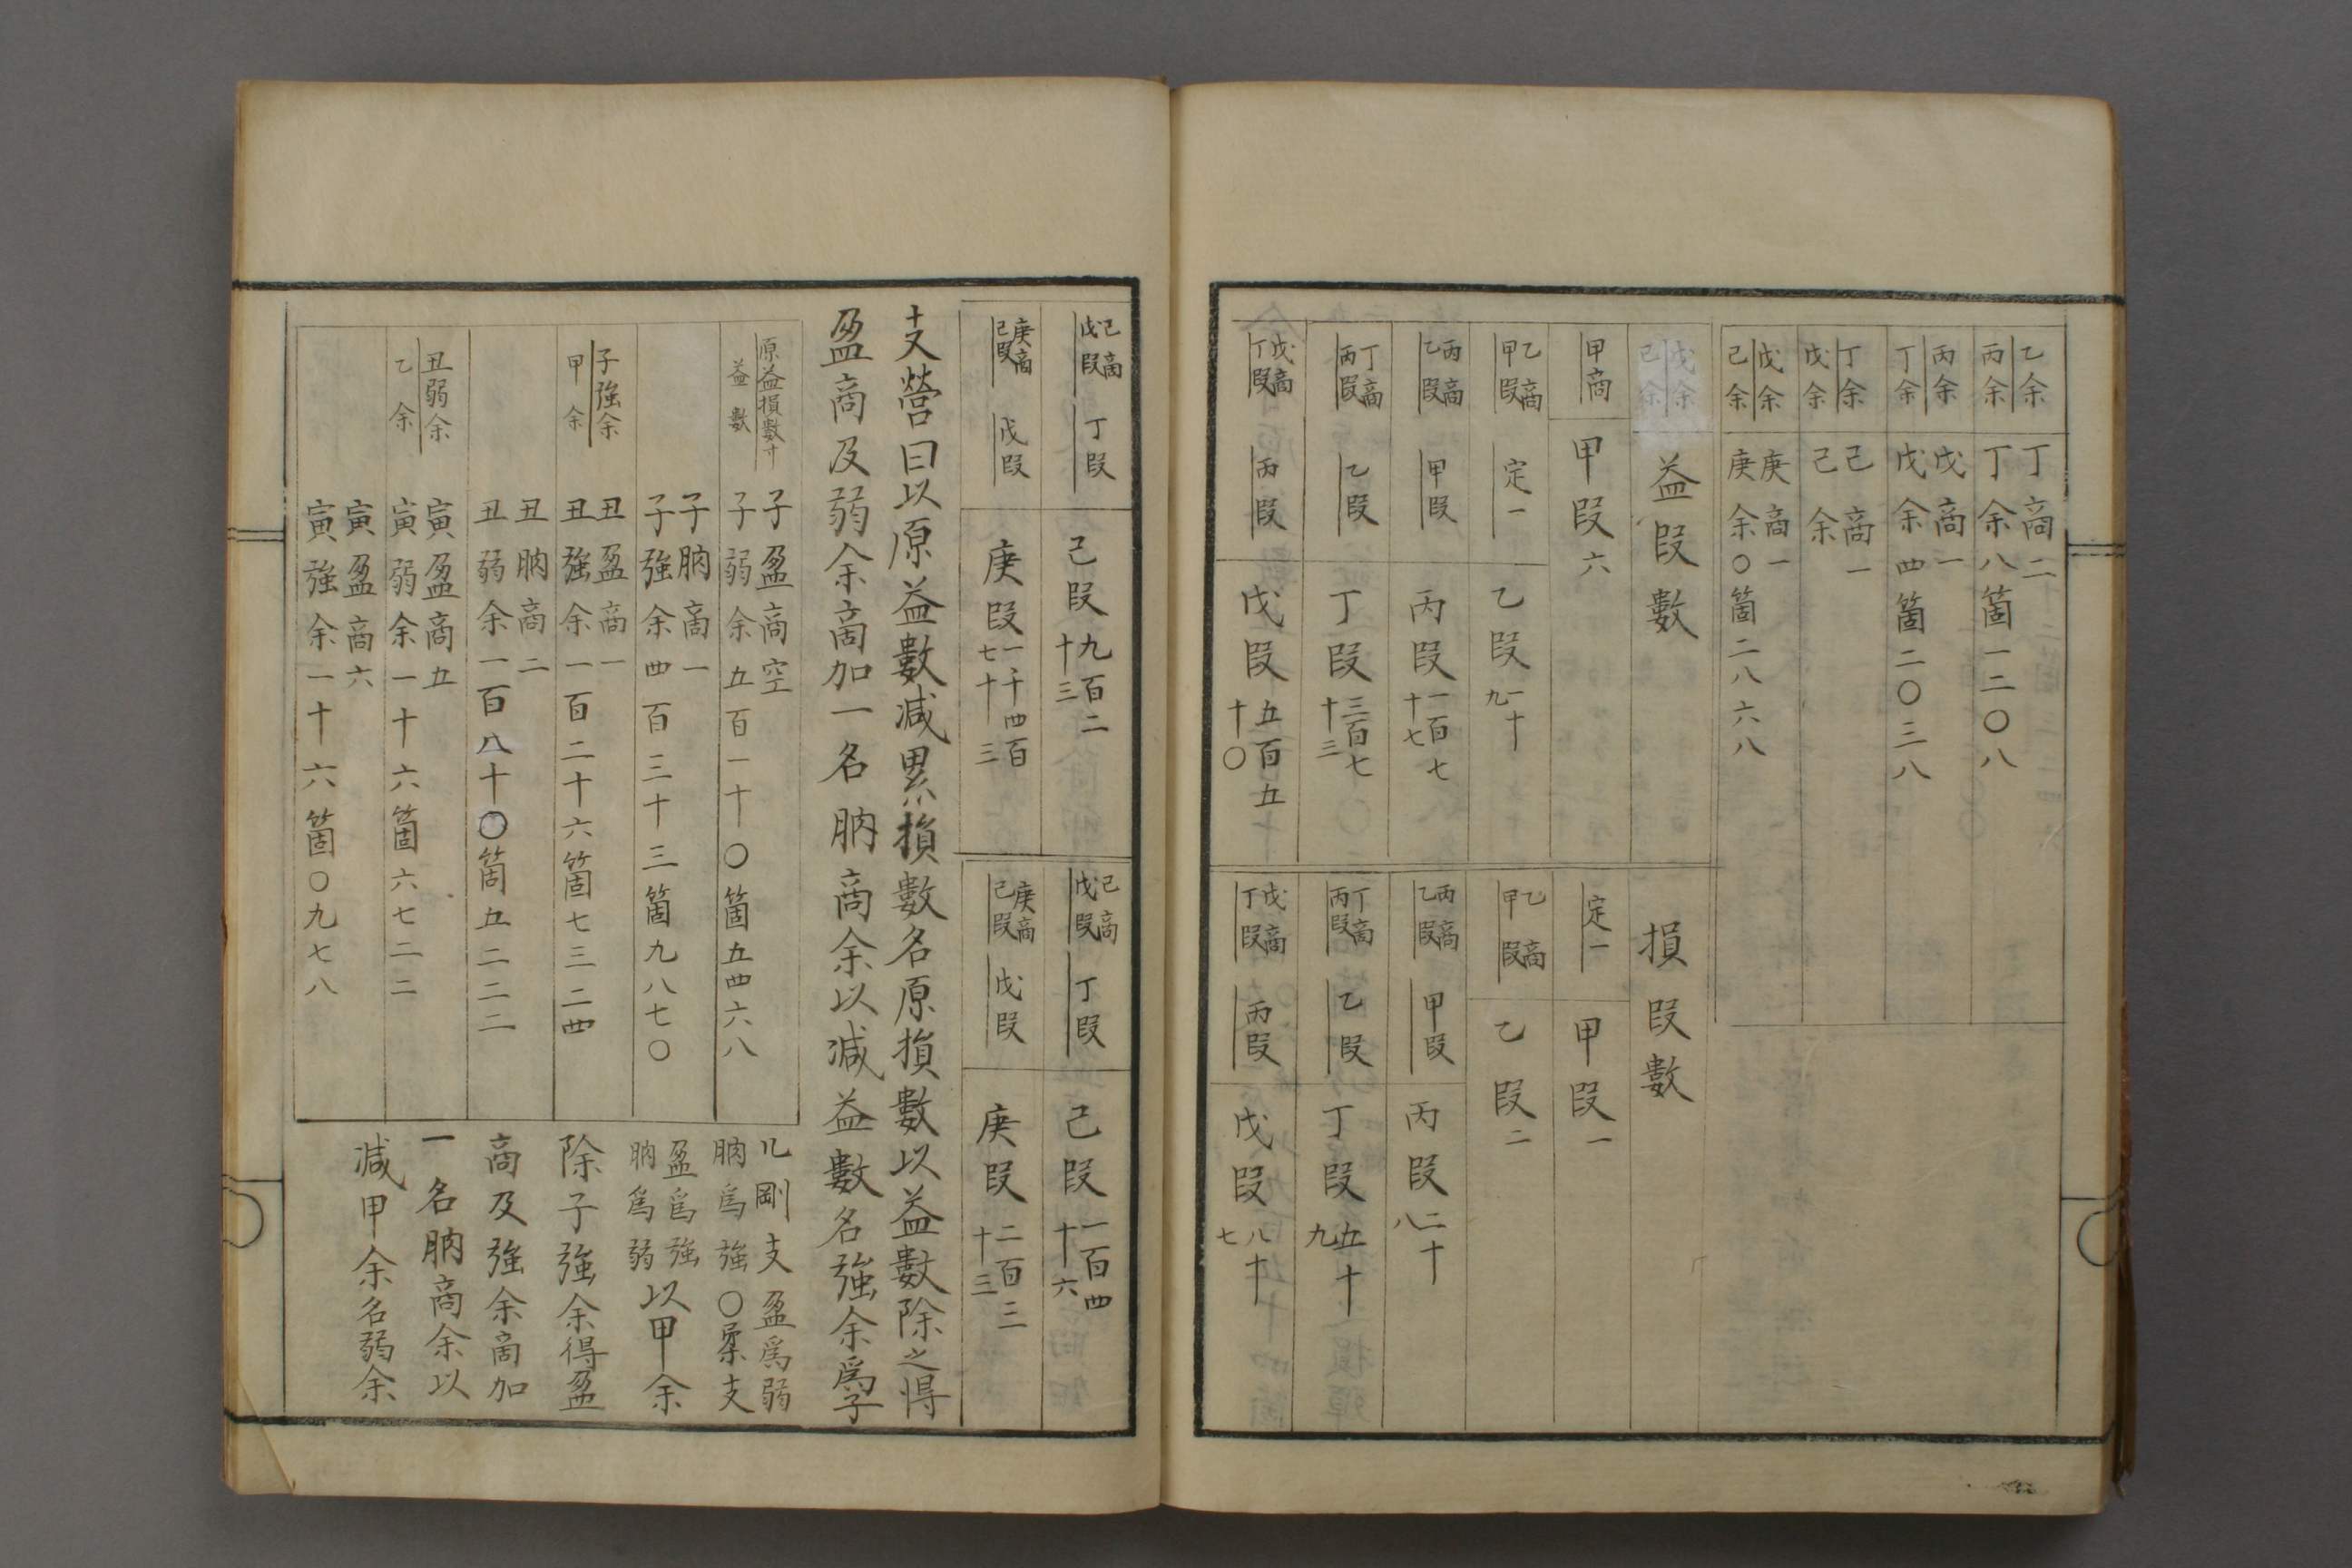 乙余 丁商二
丙余 丁余八箇一二〇八
丙余 戊商一
丁余 戊余四箇二〇三八
丁余 己商一
戊余 己余
戊余 庚商一
己余 庚余〇箇二八六八
戊余
己余
益段數
甲商 甲段六
乙商 甲段 定一 乙段一十九
丙商 乙段 甲段 丙段一百七十七
丁商 丙段 乙段 丁段三百七十三
戊商 丁段 丙段 戊段五百五十〇
損段數
定一 甲段一
乙商 甲段 乙段二
丙商 乙段 甲段 丙段二十八
丁商 丙段 乙段 丁段五十九
戊商 丁段 丙段 戊段八十七
己商 戊段 丁段 己段九百二十三
庚商 己段 戊段 庚段一千四百七十三
己商 戊段 丁段 己段一百四十六
庚商 己段 戊段 庚段二百三十三
十支營曰以原益數减累損數名原損數以益數除之得
盈商及弱余商加一名朒商余以减益數名強余爲子
原益損數寸 子盈商空
益數 子弱余五百一十〇箇五四六八
子朒商一
子強余四百三十三箇九八七〇
子強余 丑盈商一
甲余 丑強余一百二十六箇七三二四
丑朒商二
丑弱余一百八十〇箇五二二二
丑弱余 寅盈商五
乙余 寅弱余一十六箇六七二二
寅盈商六
寅強余一十六箇〇九七八
凡剛支盈爲弱
朒爲強〇柔支
盈爲強
朒爲弱以甲余
除子強余得盈
商及強余商加
一名朒商余以
减甲余名弱余